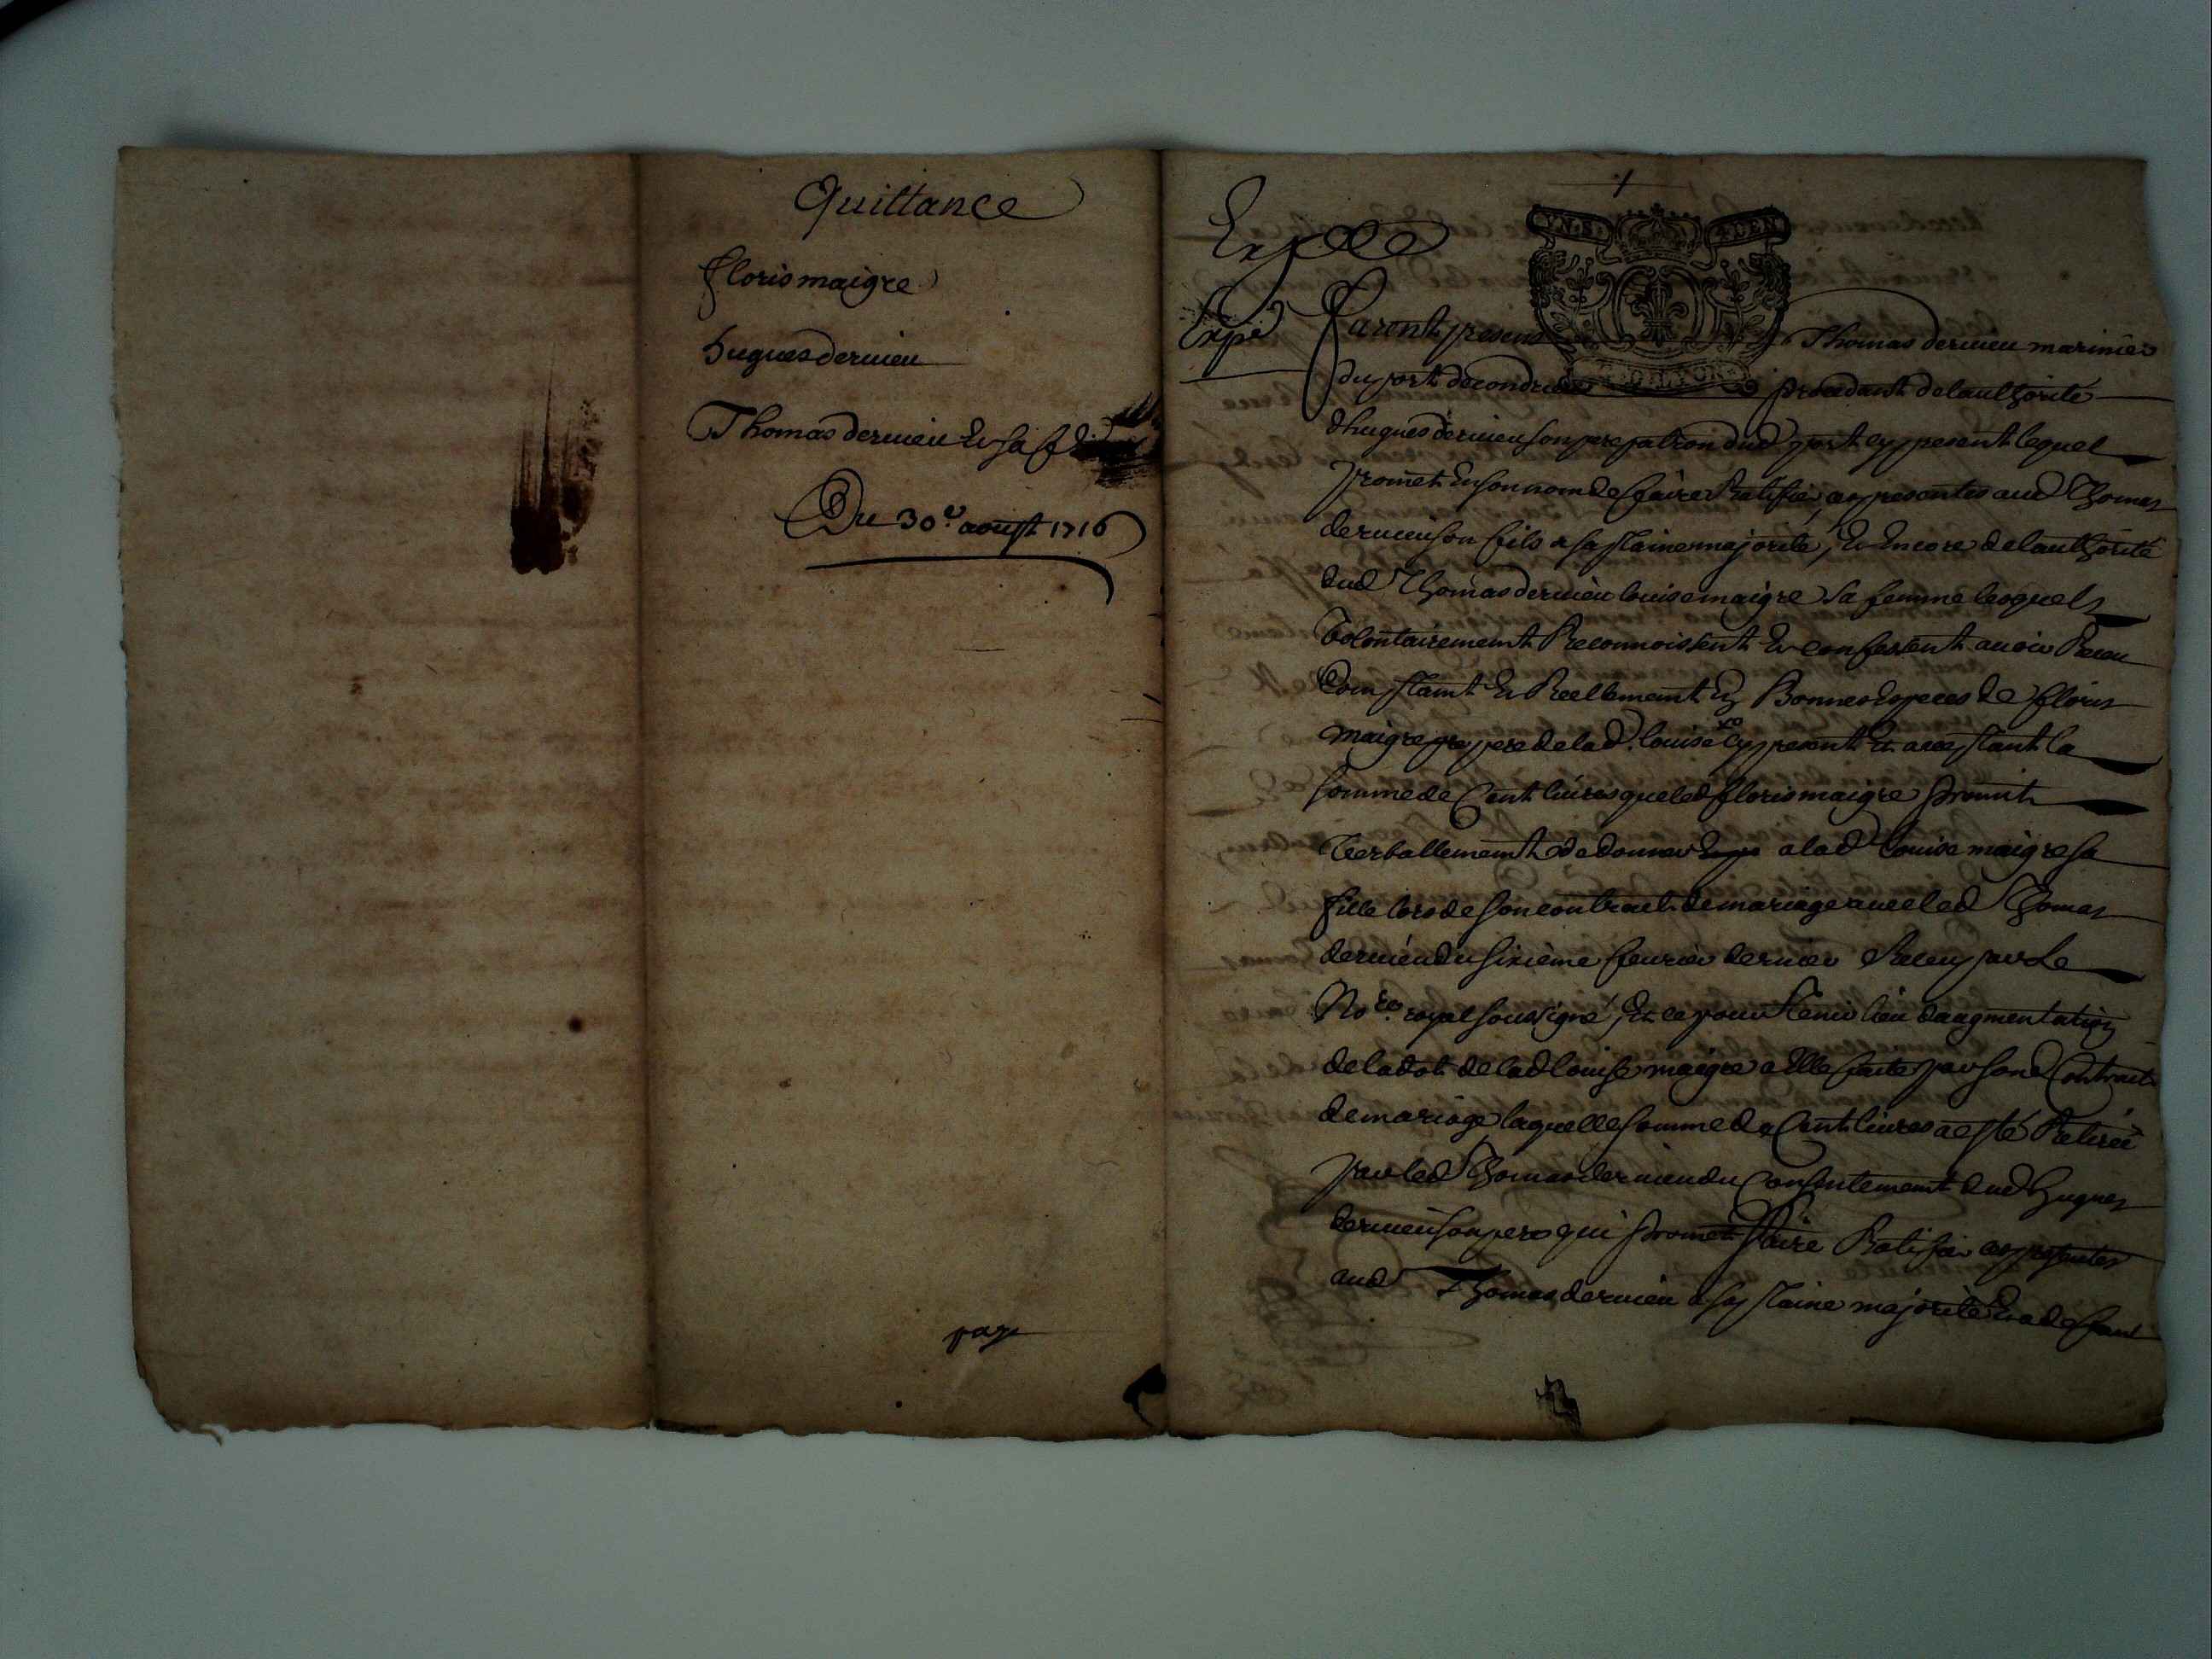 Quittance
floris maigre
hugues dervieu
Thomas dervieu Et sa f
Du 30e. aoust 1716
paye
Exped
Expé
VN.S. 4 DEN
G. D. LYON
Furent presens Thomas dervieu marinier
du port de condrieu procedant de lauthorité
dhugues dervieu son pere patron dud port cy present lequel
promet En son nom de faire Ratifier ces presentes aud Thomas
dervieu son fils a sa plaine majorité, Et Encore de lauthorité
dud Thomas dervieu louise maigre sa femme lesquels
Volontairement Reconnoissent Et confessent avoir Receu
Comptant Et Reellement En Bonnes Especes de floris
maigre pere de lad. louise cy present Et acceptant la
somme de Cent livres que led floris maigre promit
Verballement de donner a lad louise maigre sa
fille lors de son contract de mariage avec led Thomas
dervieu du sixieme fevrier dernier Receu par Le
Nore. royal soussigné, Et ce pour Tenir lieu daugmentation
de la dot de lad louise maigre a Elle faite par sond Contract
de mariage laquelle somme de Cent livres a esté Retirée
par led Thomas dervieu du Consentement dud hugues
dervieu son pere qui promet faire Ratifier ces presentes
aud Thomas dervieu a sa plaine majorité Et a deffaut